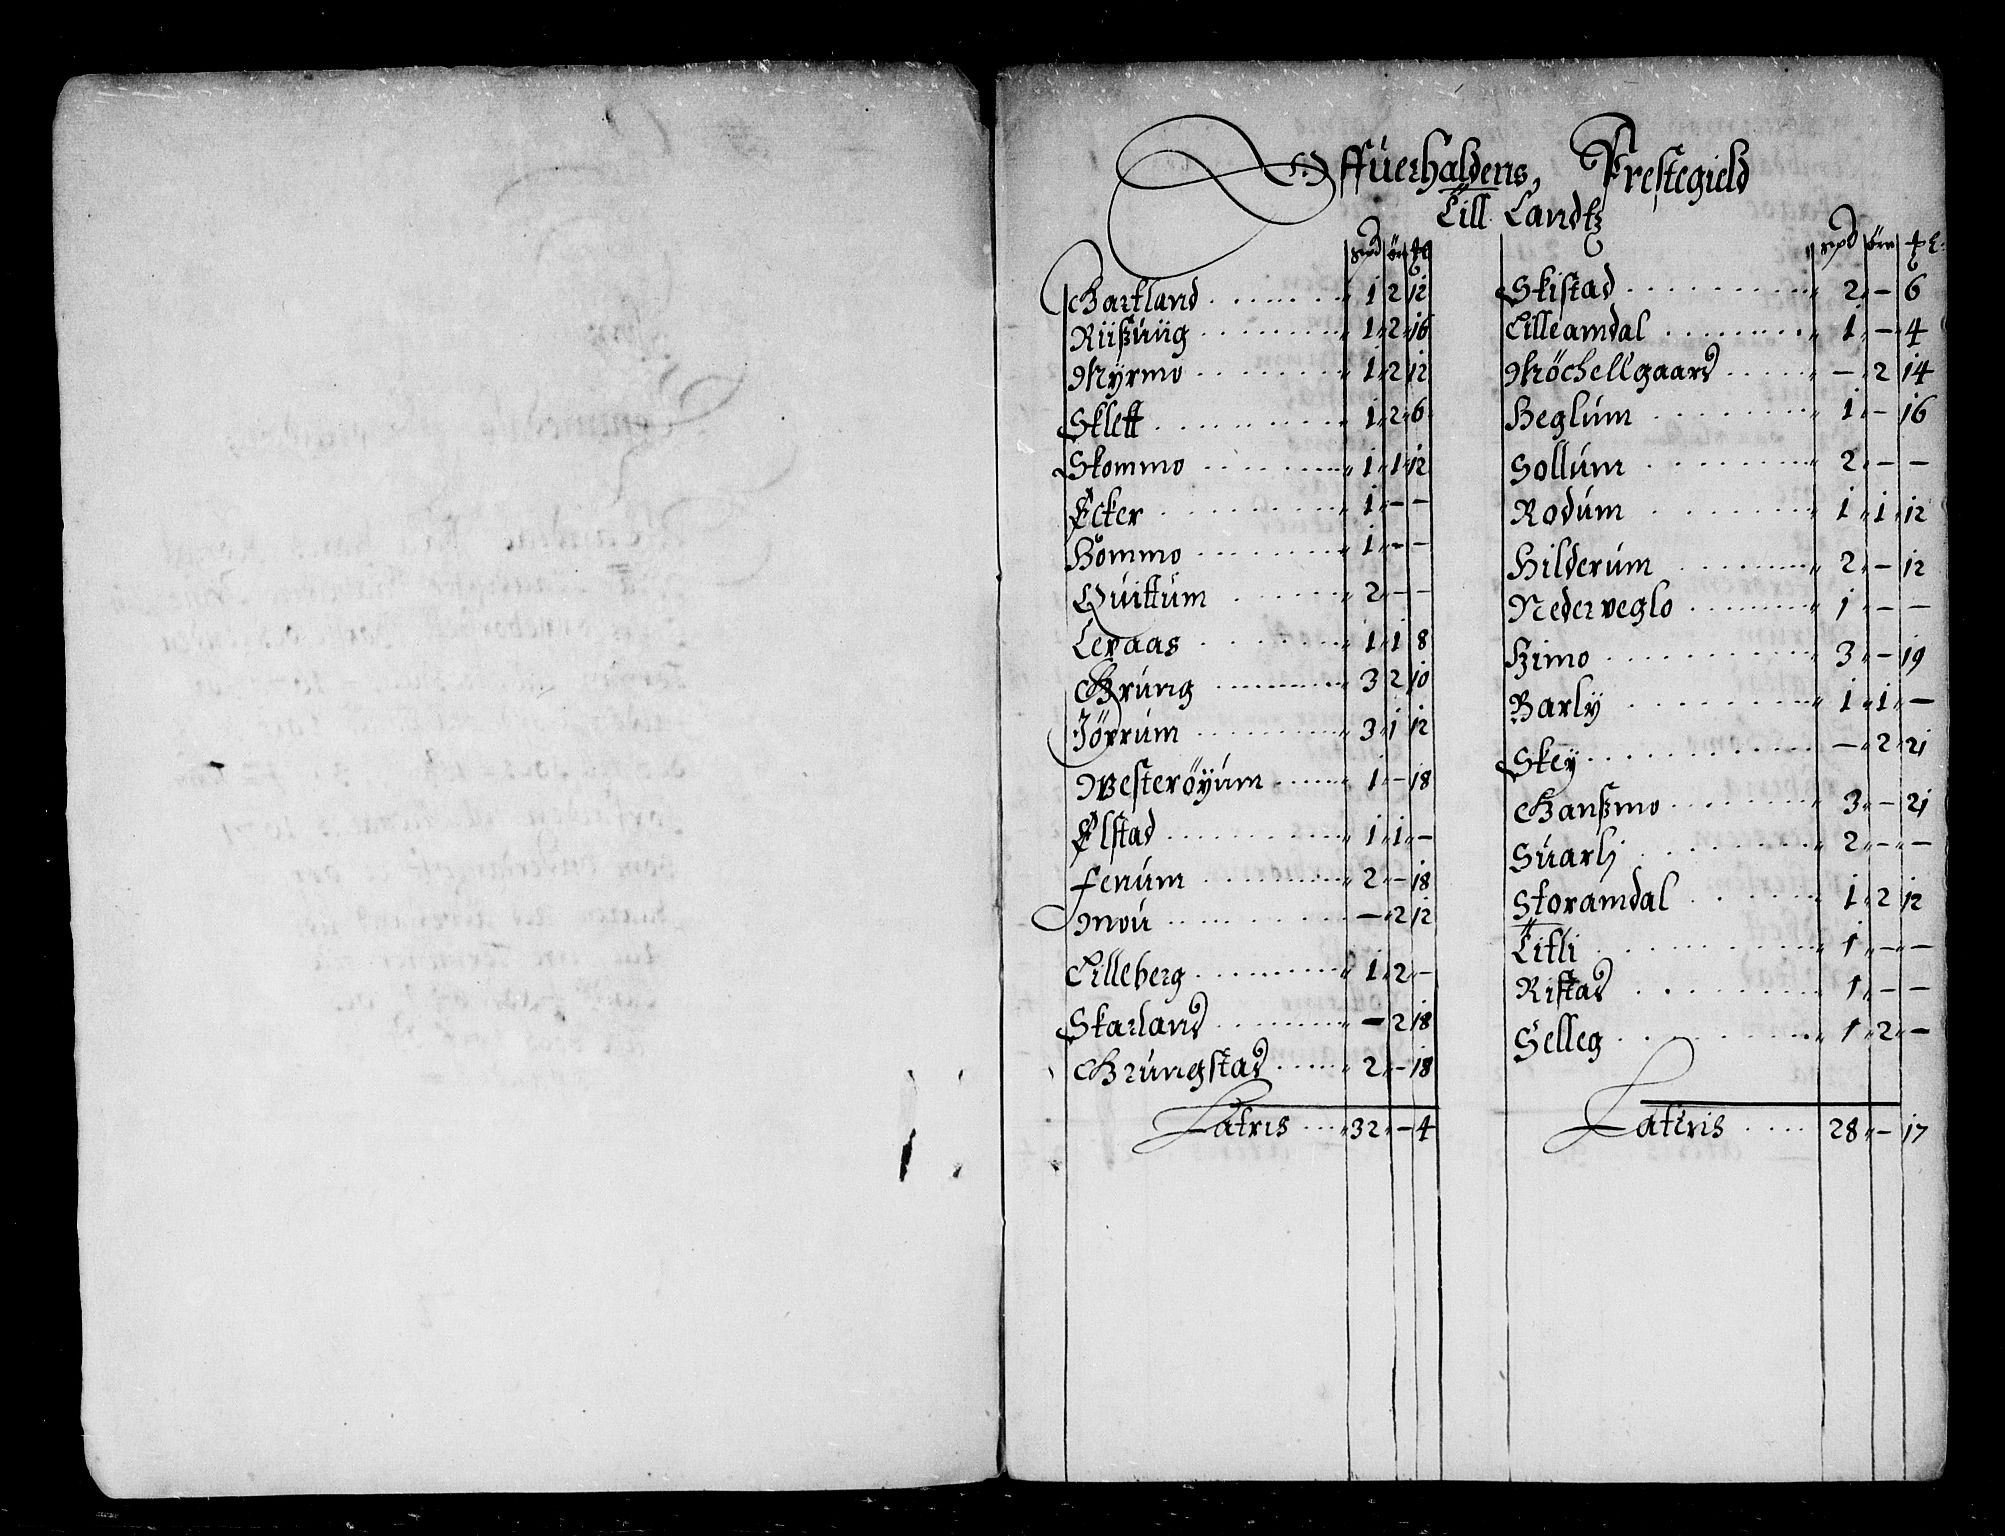 Offuerhaldens, Prestegield
Till Landtz
spd ør
Gartland 1 2 12
Riißüüg 1 2 16
Myrmo 1 2 12
Sklett 1 2 6
Skommo 1 1 12
Ecker 1 – –
Hømmo 1 – –
Quittum 2 – –
Leraas 1 1 8
Grüng 3 2 10
Jørrüm 3 1 12
Westerøyüm 1 – 18
Elstad 1 1 –
Fenüm 2 – 18
Moü – 2 12
Lilleberg 1 2 –
Skarland – 2 18
Grüngstad 2 – 18
Latris 32 – 4
spd øre
Skistad 2 – 6
Lilleamdal 1 – 4
Møchellgaard – 2 14
Heglüm 1 – 16
Sollüm 2 – –
Rodüm 1 1 12
Hilderüm 2 – 12
Nederveglo 1 – –
Himo 3 – 19
Barly 1 1 –
Skey – 2 21
Ganßmo 3 – 21
Süarlj 2 – –
Storamdal 1 2 12
Titli 1 – –
Ristad 1 – –
Selleg 1 2 –
Lateris 28 – 17